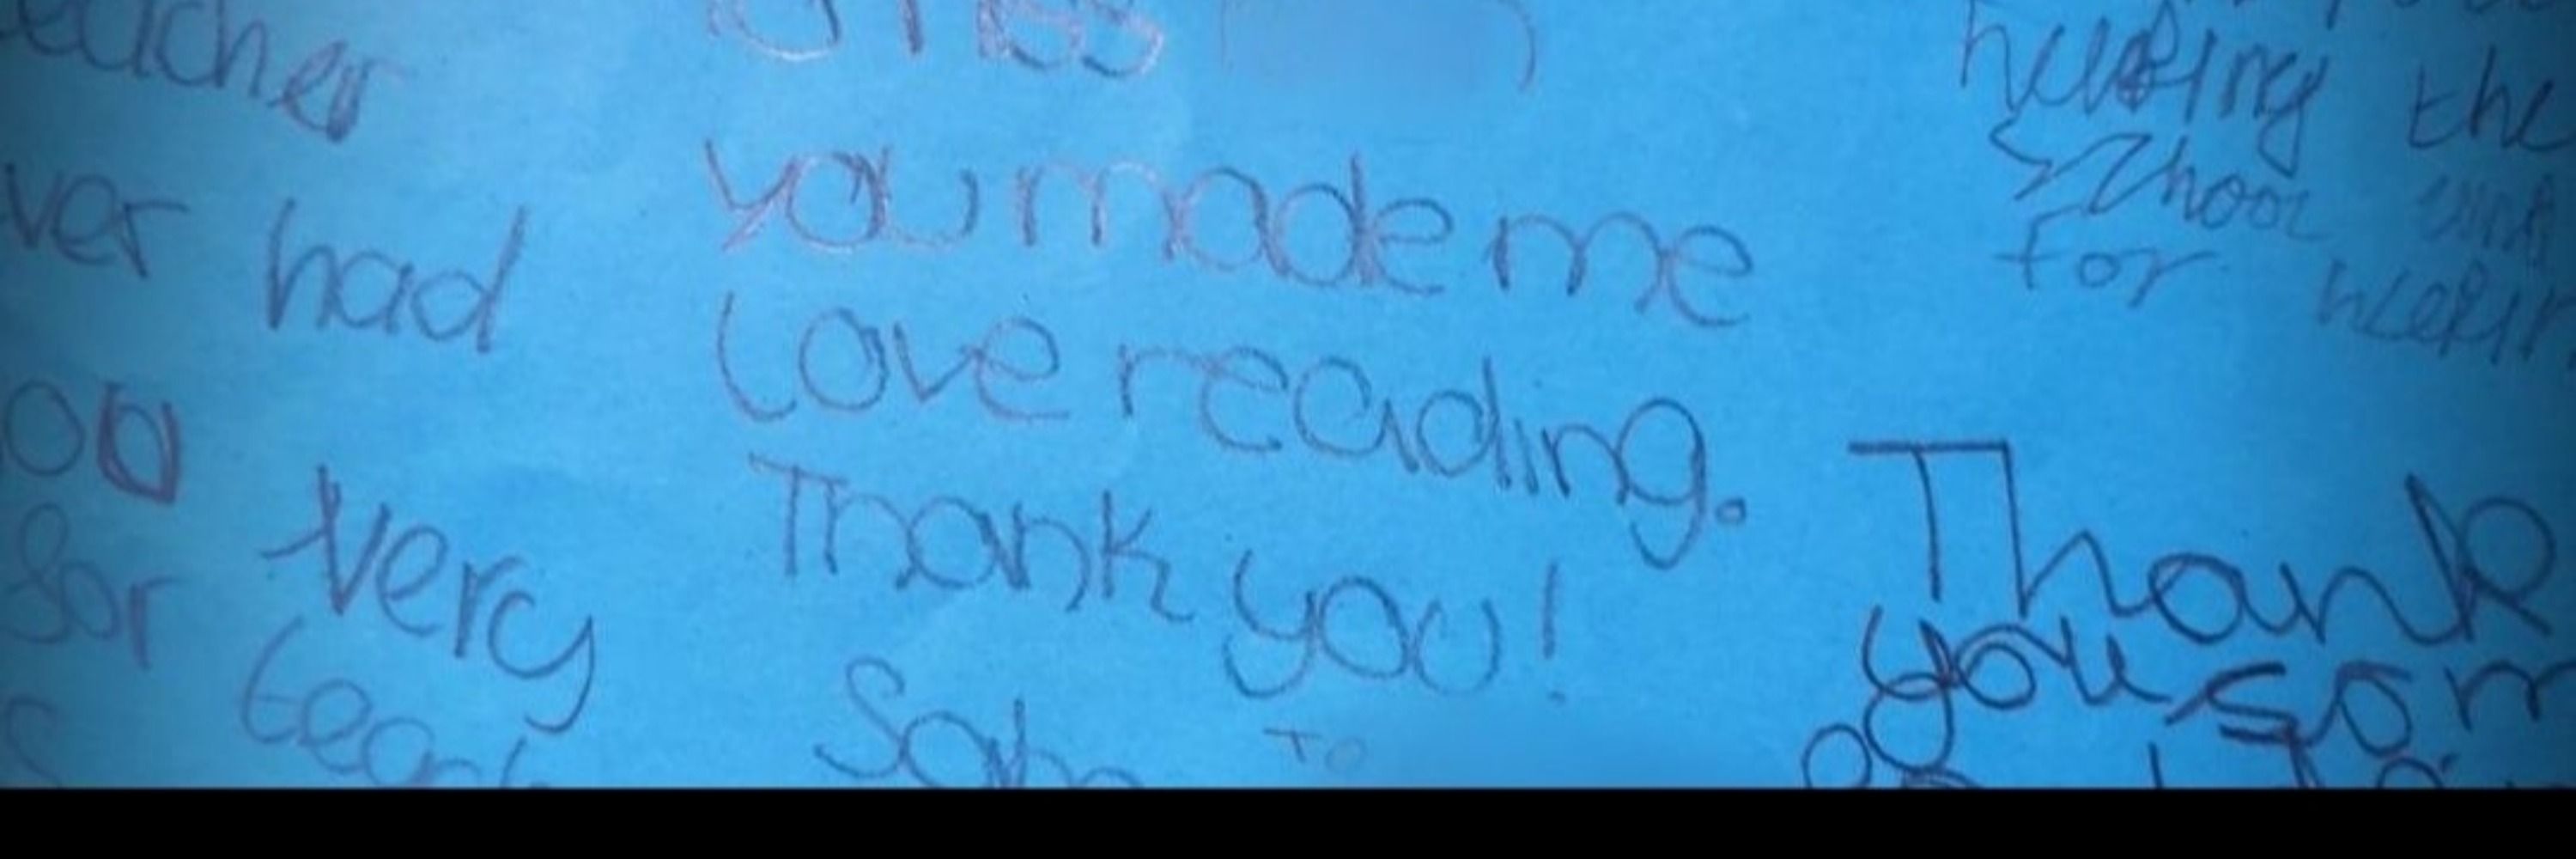 teacher
ver had
you
for very
teach
To Miss
you made me
Love reading.
Thank you!
To
helping the
school
for
Thank
you so m